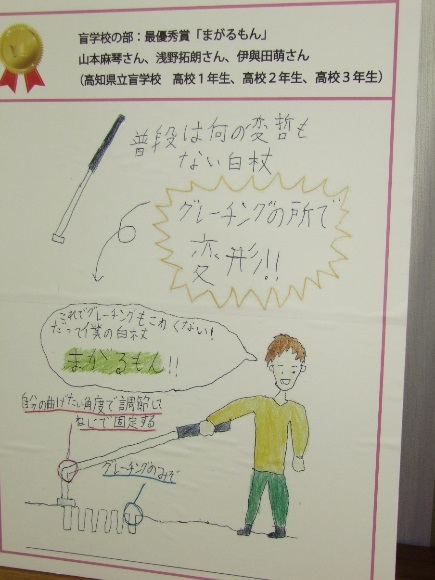 盲学校の部：最優秀賞「まがるもん」
山本麻琴さん、浅野拓朗さん、伊與田萌さん
（高知県立盲学校　高校１年生、高校２年生、高校３年生）
普段は何の変哲も
ない白杖
グレーチングの所で
変形!!
これでグレーチングもこわくない！
だって僕の白杖
まがるもん!!
自分の曲げたい角度で調節して
ねじで固定する
グレーチングのみぞ